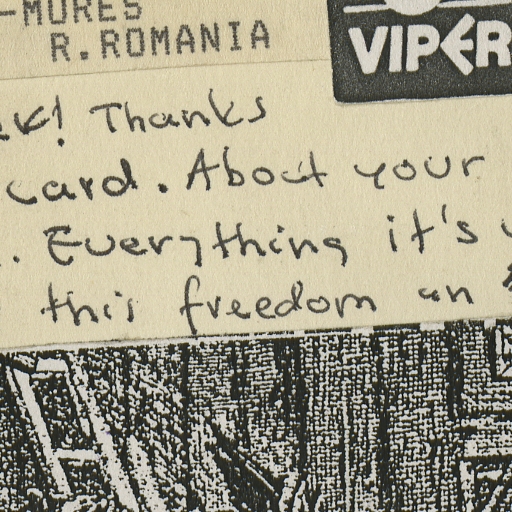 -MURES
R.ROMANIA
VIPER
Thanks
card. About your
. Everything it's
this freedom an